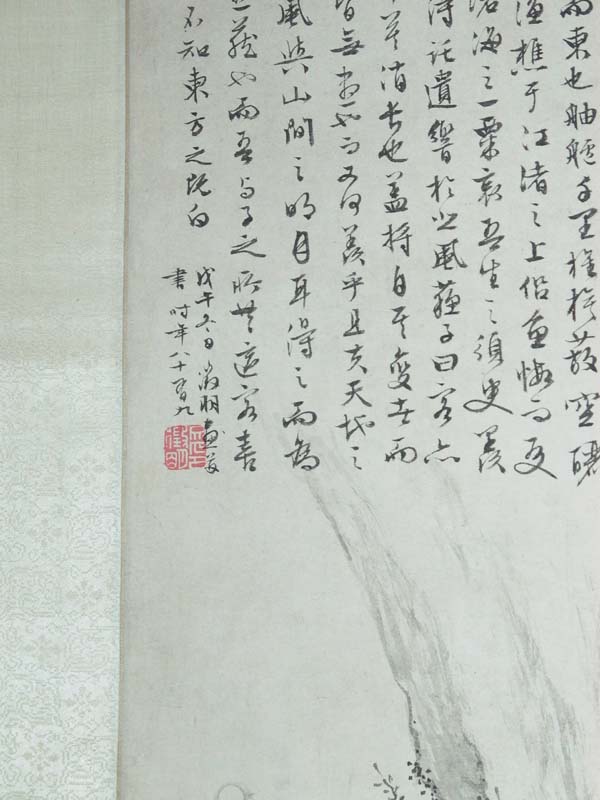 而東也舳艫千里旌旗蔽空釃
漁樵于江渚之上侶魚蝦而友
滄海之一粟哀吾生之須臾羨
得託遺響於悲風蘇子曰客亦
莫消長也蓋將自其變者而
皆無盡也而又何羨乎且夫天地之
風與山間之明月耳得之而為
之藏也而吾與子之所共適客喜
不知東方之既白
戊午冬日徵明畫并
書時年八十有九
徵明